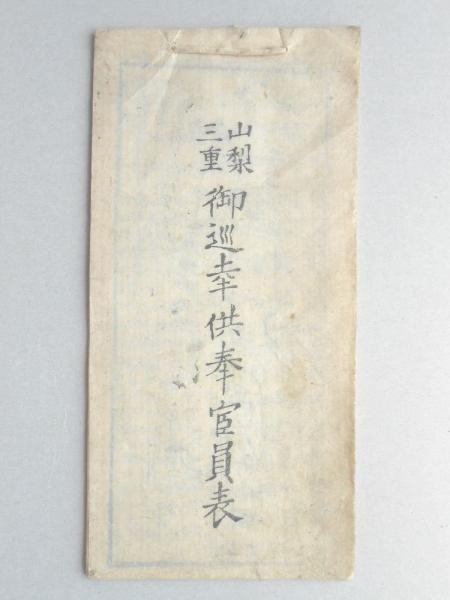 山梨
三重
御巡幸供奉官員表